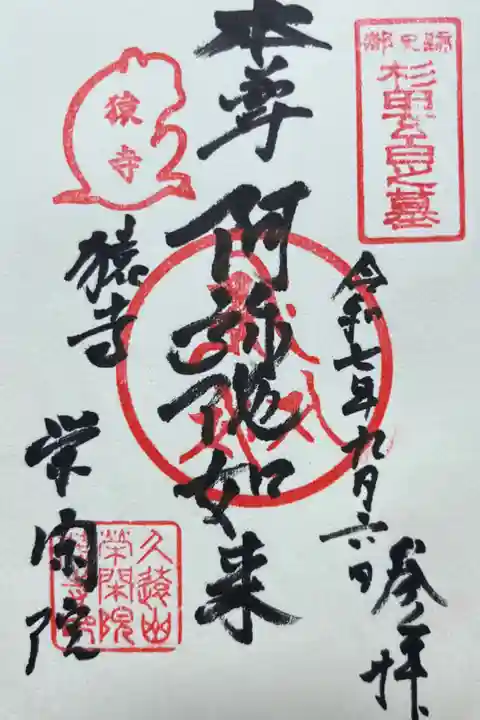 都史跡
杉田玄白之墓
令和七年九月六日
参拝
本尊
阿弥陀如来
猿寺
猿寺
栄閑院
久遠山
榮閑院